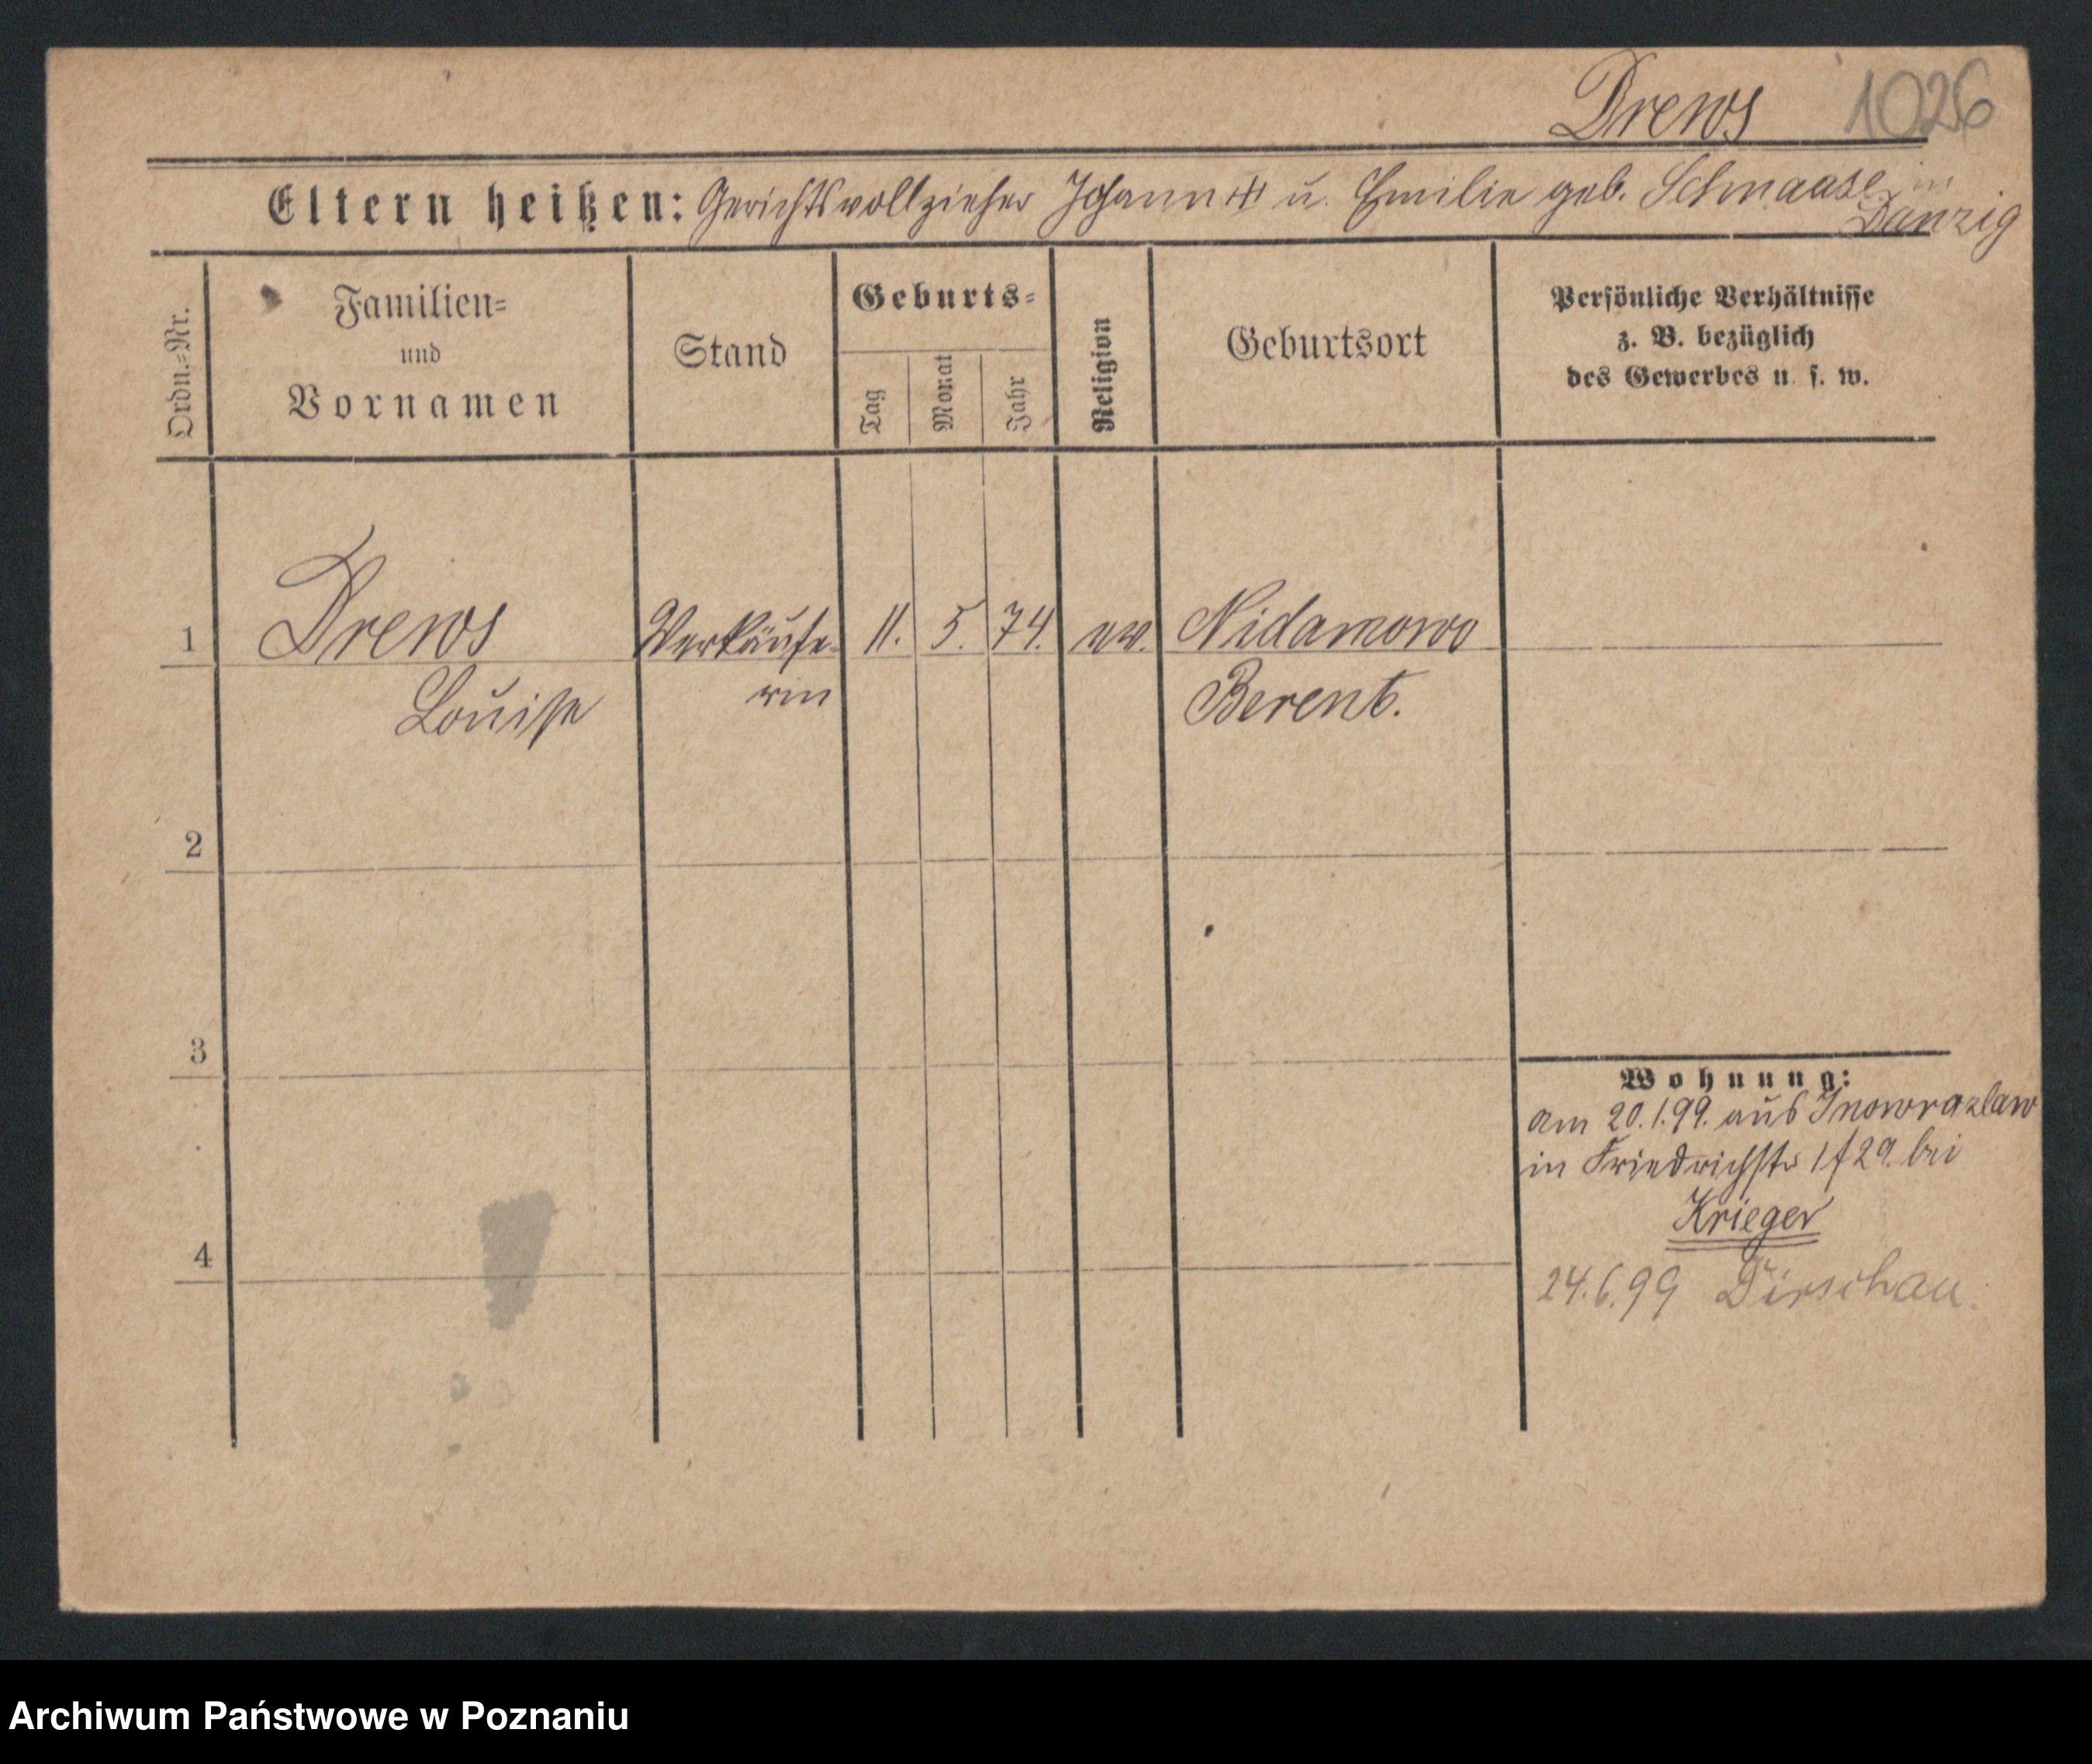 Drews 1026
Eltern heißen: Gerichtsvollzieher Johann ✝ u. Emilie geb. Schmaase in
Danzig
Ordn.=Nr.
Familien=
und
Vornamen
Stand
Geburts=
Tag
Monat
Jahr
Religion
Geburtsort
Persönliche Verhältnisse
z. B. bezüglich
des Gewerbes u. s. w.
1 Drews Verkäufe- 11. 5. 74. ev. Nidamowo
Louise rin Berent.
2
3
Wohnung:
am 20.1.99. aus Inowrazlaw
in Friedrichstr 29. bei
Krieger
4
24.6.99 Dirschau.
Archiwum Państwowe w Poznaniu